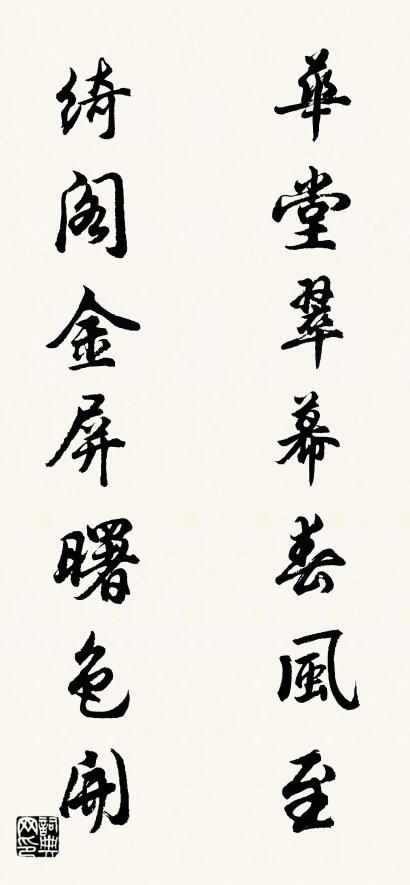 華堂翠幕春風至
綺閣金屏曙色開
詞典網印